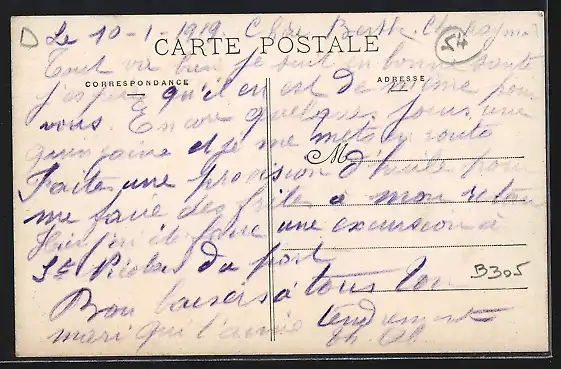 D
Le 10-1-1919. Chère Berthe
54
CARTE POSTALE
Tout va bien je suit en bonne santé
CORRESPONDANCE
ADRESSE
j'espère qu'il en est de même pour
vous. Encore quelques jours une
quinzaine et je me mets en route
M
Faite une provision d'huile pour
me faire des frite a mon retour
Hier j'ai été faire une excursion à
St Nicolas du port
B305
Bon baisers à tous Ton
mari qui t'aime tendrement